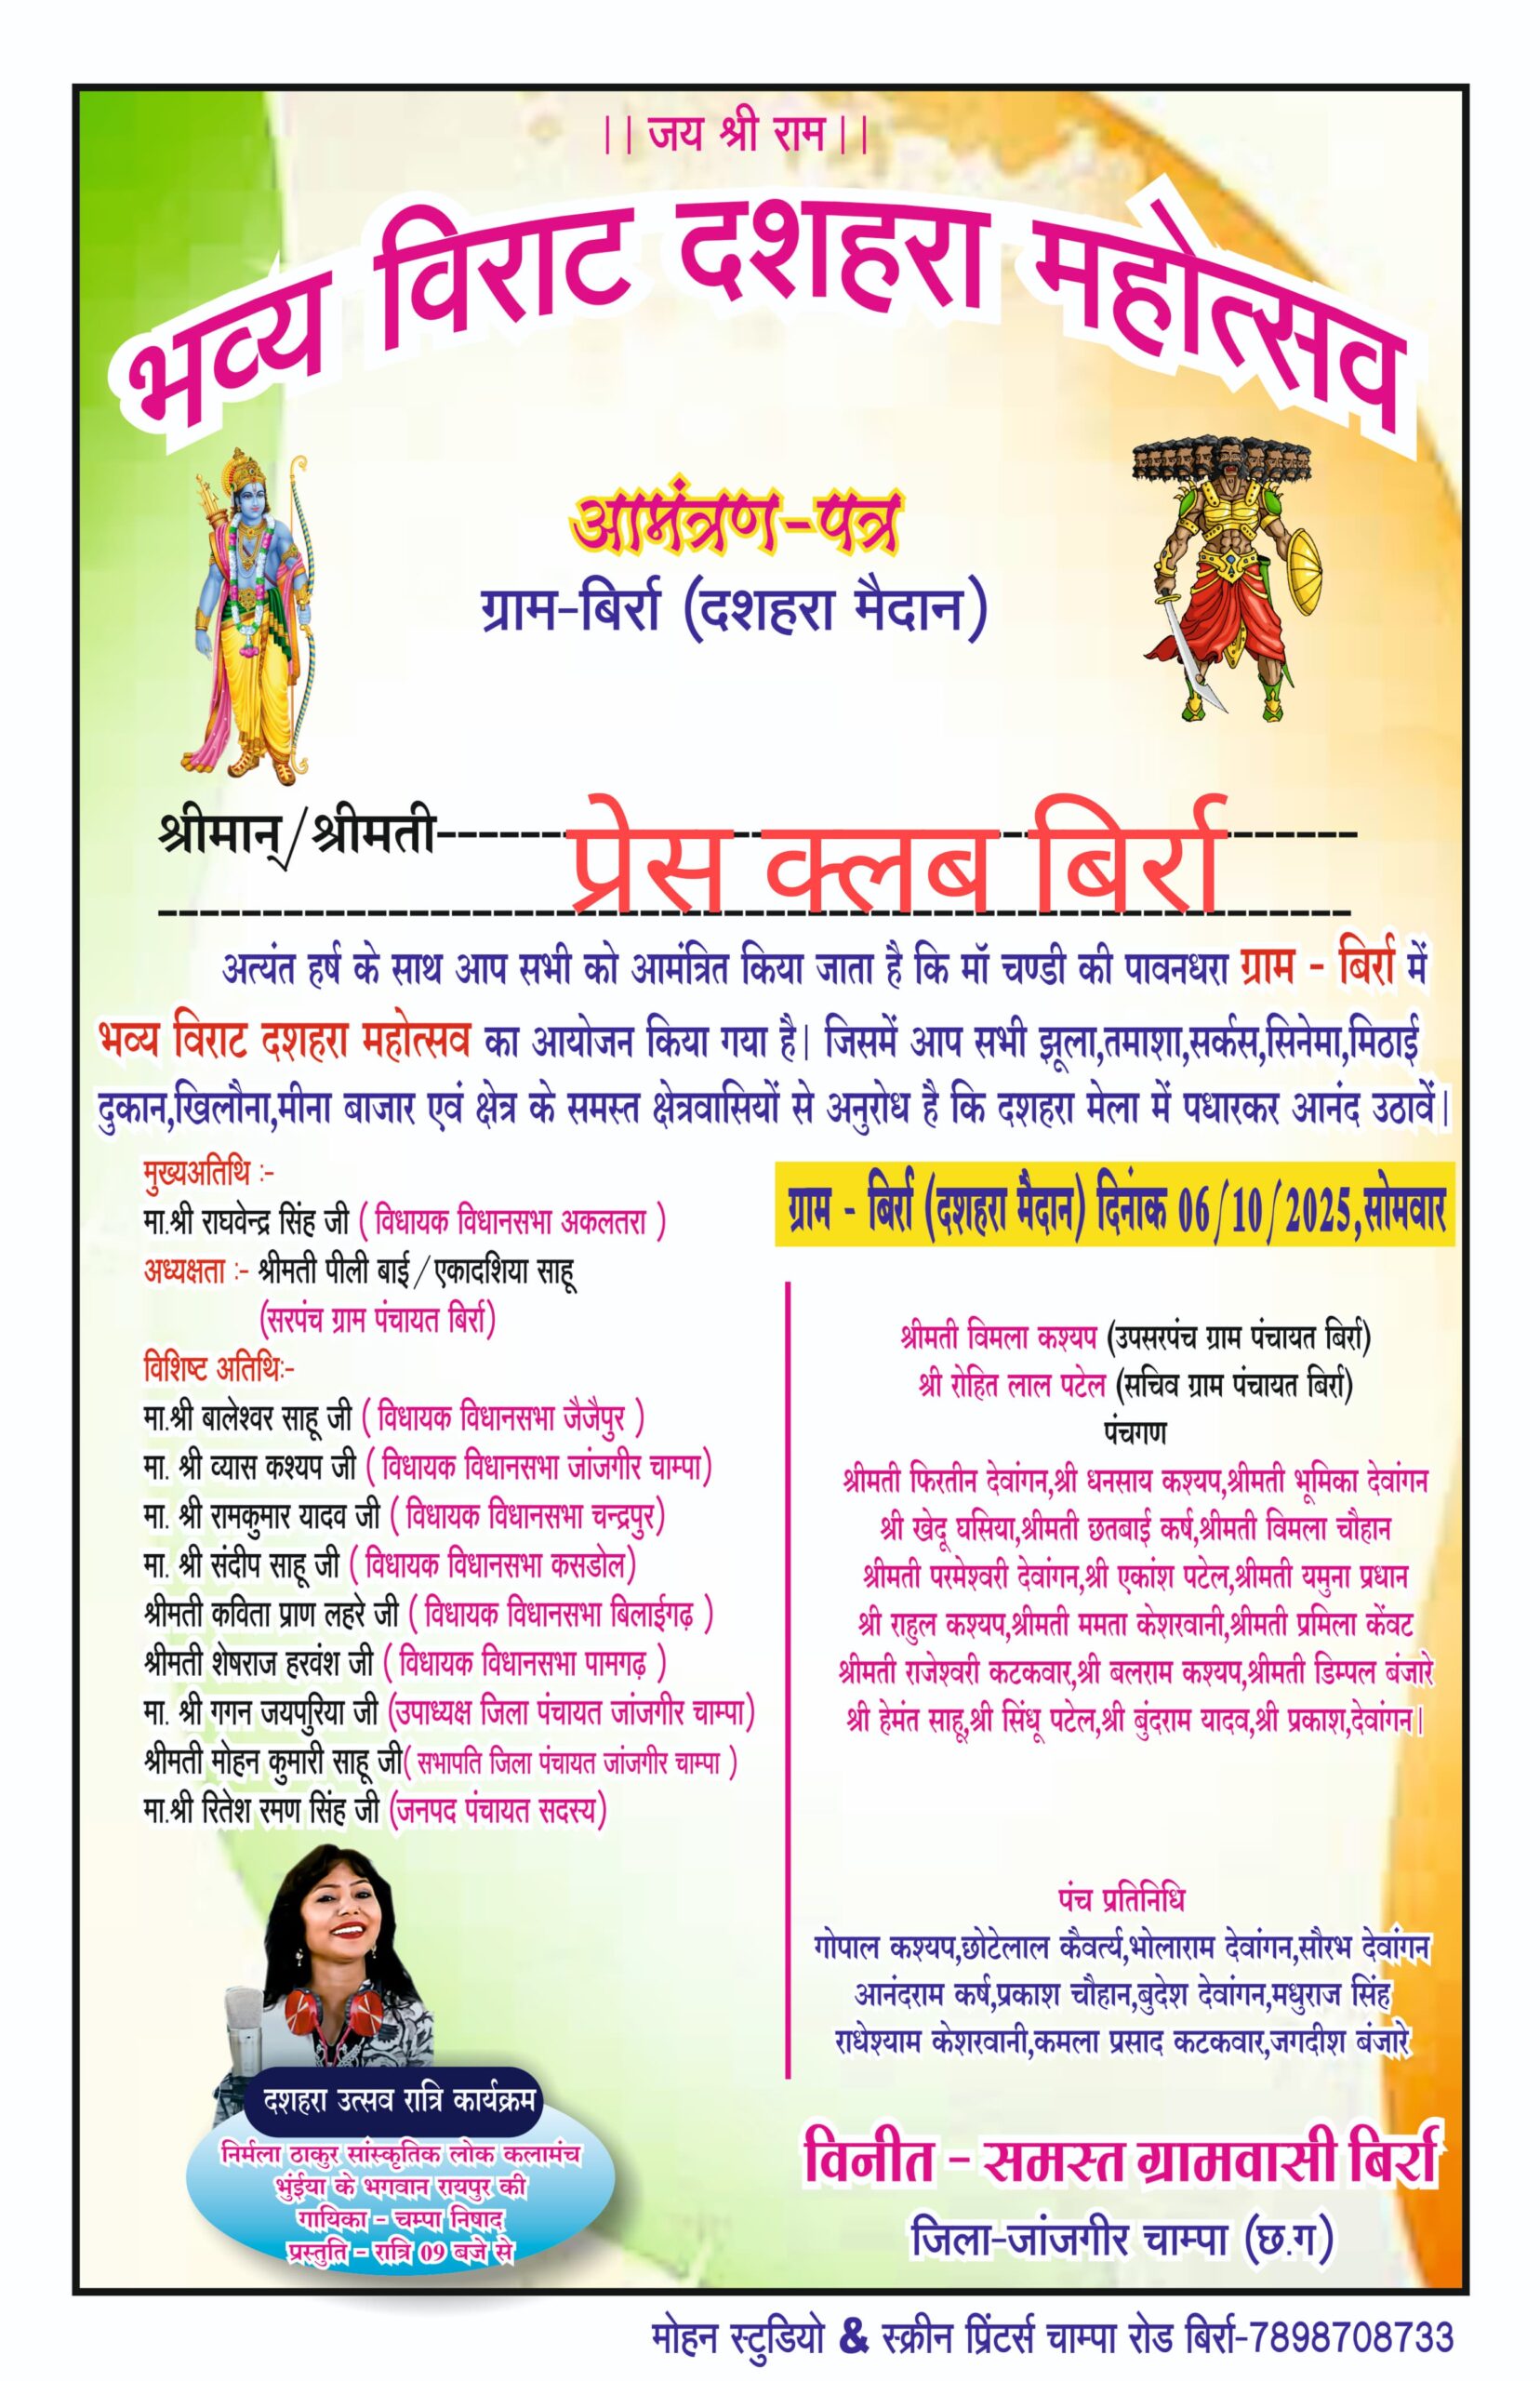 ||जय श्री राम||
भव्य विराट दशहरा महोत्सव
आमंत्रण-पत्र
ग्राम-बिर्रा (दशहरा मैदान)
श्रीमान्/श्रीमती प्रेस क्लब बिर्रा
अत्यंत हर्ष के साथ आप सभी को आमंत्रित किया जाता है कि मॉ चण्डी की पावनधरा ग्राम - बिर्रा में
भव्य विराट दशहरा महोत्सव का आयोजन किया गया है| जिसमें आप सभी झूला,तमाशा,सर्कस,सिनेमा,मिठाई
दुकान,खिलौना,मीना बाजार एवं क्षेत्र के समस्त क्षेत्रवासियों से अनुरोध है कि दशहरा मेला में पधारकर आनंद उठावें|
मुख्यअतिथि :-
मा.श्री राघवेन्द्र सिंह जी ( विधायक विधानसभा अकलतरा )
अध्यक्षता :- श्रीमती पीली बाई/एकादशिया साहू
(सरपंच ग्राम पंचायत बिर्रा)
विशिष्ट अतिथिः-
मा.श्री बालेश्वर साहू जी ( विधायक विधानसभा जैजैपुर )
मा. श्री व्यास कश्यप जी ( विधायक विधानसभा जांजगीर चाम्पा)
मा. श्री रामकुमार यादव जी ( विधायक विधानसभा चन्द्रपुर)
मा. श्री संदीप साहू जी ( विधायक विधानसभा कसडोल)
श्रीमती कविता प्राण लहरे जी ( विधायक विधानसभा बिलाईगढ़ )
श्रीमती शेषराज हरवंश जी ( विधायक विधानसभा पामगढ़ )
मा. श्री गगन जयपुरिया जी (उपाध्यक्ष जिला पंचायत जांजगीर चाम्पा)
श्रीमती मोहन कुमारी साहू जी( सभापति जिला पंचायत जांजगीर चाम्पा )
मा.श्री रितेश रमण सिंह जी (जनपद पंचायत सदस्य)
दशहरा उत्सव रात्रि कार्यक्रम
निर्मला ठाकुर सांस्कृतिक लोक कलामंच
भुंईया के भगवान रायपुर की
गायिका - चम्पा निषाद
प्रस्तुति - रात्रि 09 बजे से
ग्राम - बिर्रा (दशहरा मैदान) दिनांक 06/10/2025,सोमवार
श्रीमती विमला कश्यप (उपसरपंच ग्राम पंचायत बिर्रा)
श्री रोहित लाल पटेल (सचिव ग्राम पंचायत बिर्रा)
पंचगण
श्रीमती फिरतीन देवांगन,श्री धनसाय कश्यप,श्रीमती भूमिका देवांगन
श्री खेदू घसिया,श्रीमती छतबाई कर्ष,श्रीमती विमला चौहान
श्रीमती परमेश्वरी देवांगन,श्री एकांश पटेल,श्रीमती यमुना प्रधान
श्री राहुल कश्यप,श्रीमती ममता केशरवानी,श्रीमती प्रमिला केंवट
श्रीमती राजेश्वरी कटकवार,श्री बलराम कश्यप,श्रीमती डिम्पल बंजारे
श्री हेमंत साहू,श्री सिंधू पटेल,श्री बुंदराम यादव,श्री प्रकाश,देवांगन|
पंच प्रतिनिधि
गोपाल कश्यप,छोटेलाल कैवर्त्य,भोलाराम देवांगन,सौरभ देवांगन
आनंदराम कर्ष,प्रकाश चौहान,बुदेश देवांगन,मधुराज सिंह
राधेश्याम केशरवानी,कमला प्रसाद कटकवार,जगदीश बंजारे
विनीत - समस्त ग्रामवासी बिर्रा
जिला-जांजगीर चाम्पा (छ.ग)
मोहन स्टुडियो & स्क्रीन प्रिंटर्स चाम्पा रोड बिर्रा-7898708733